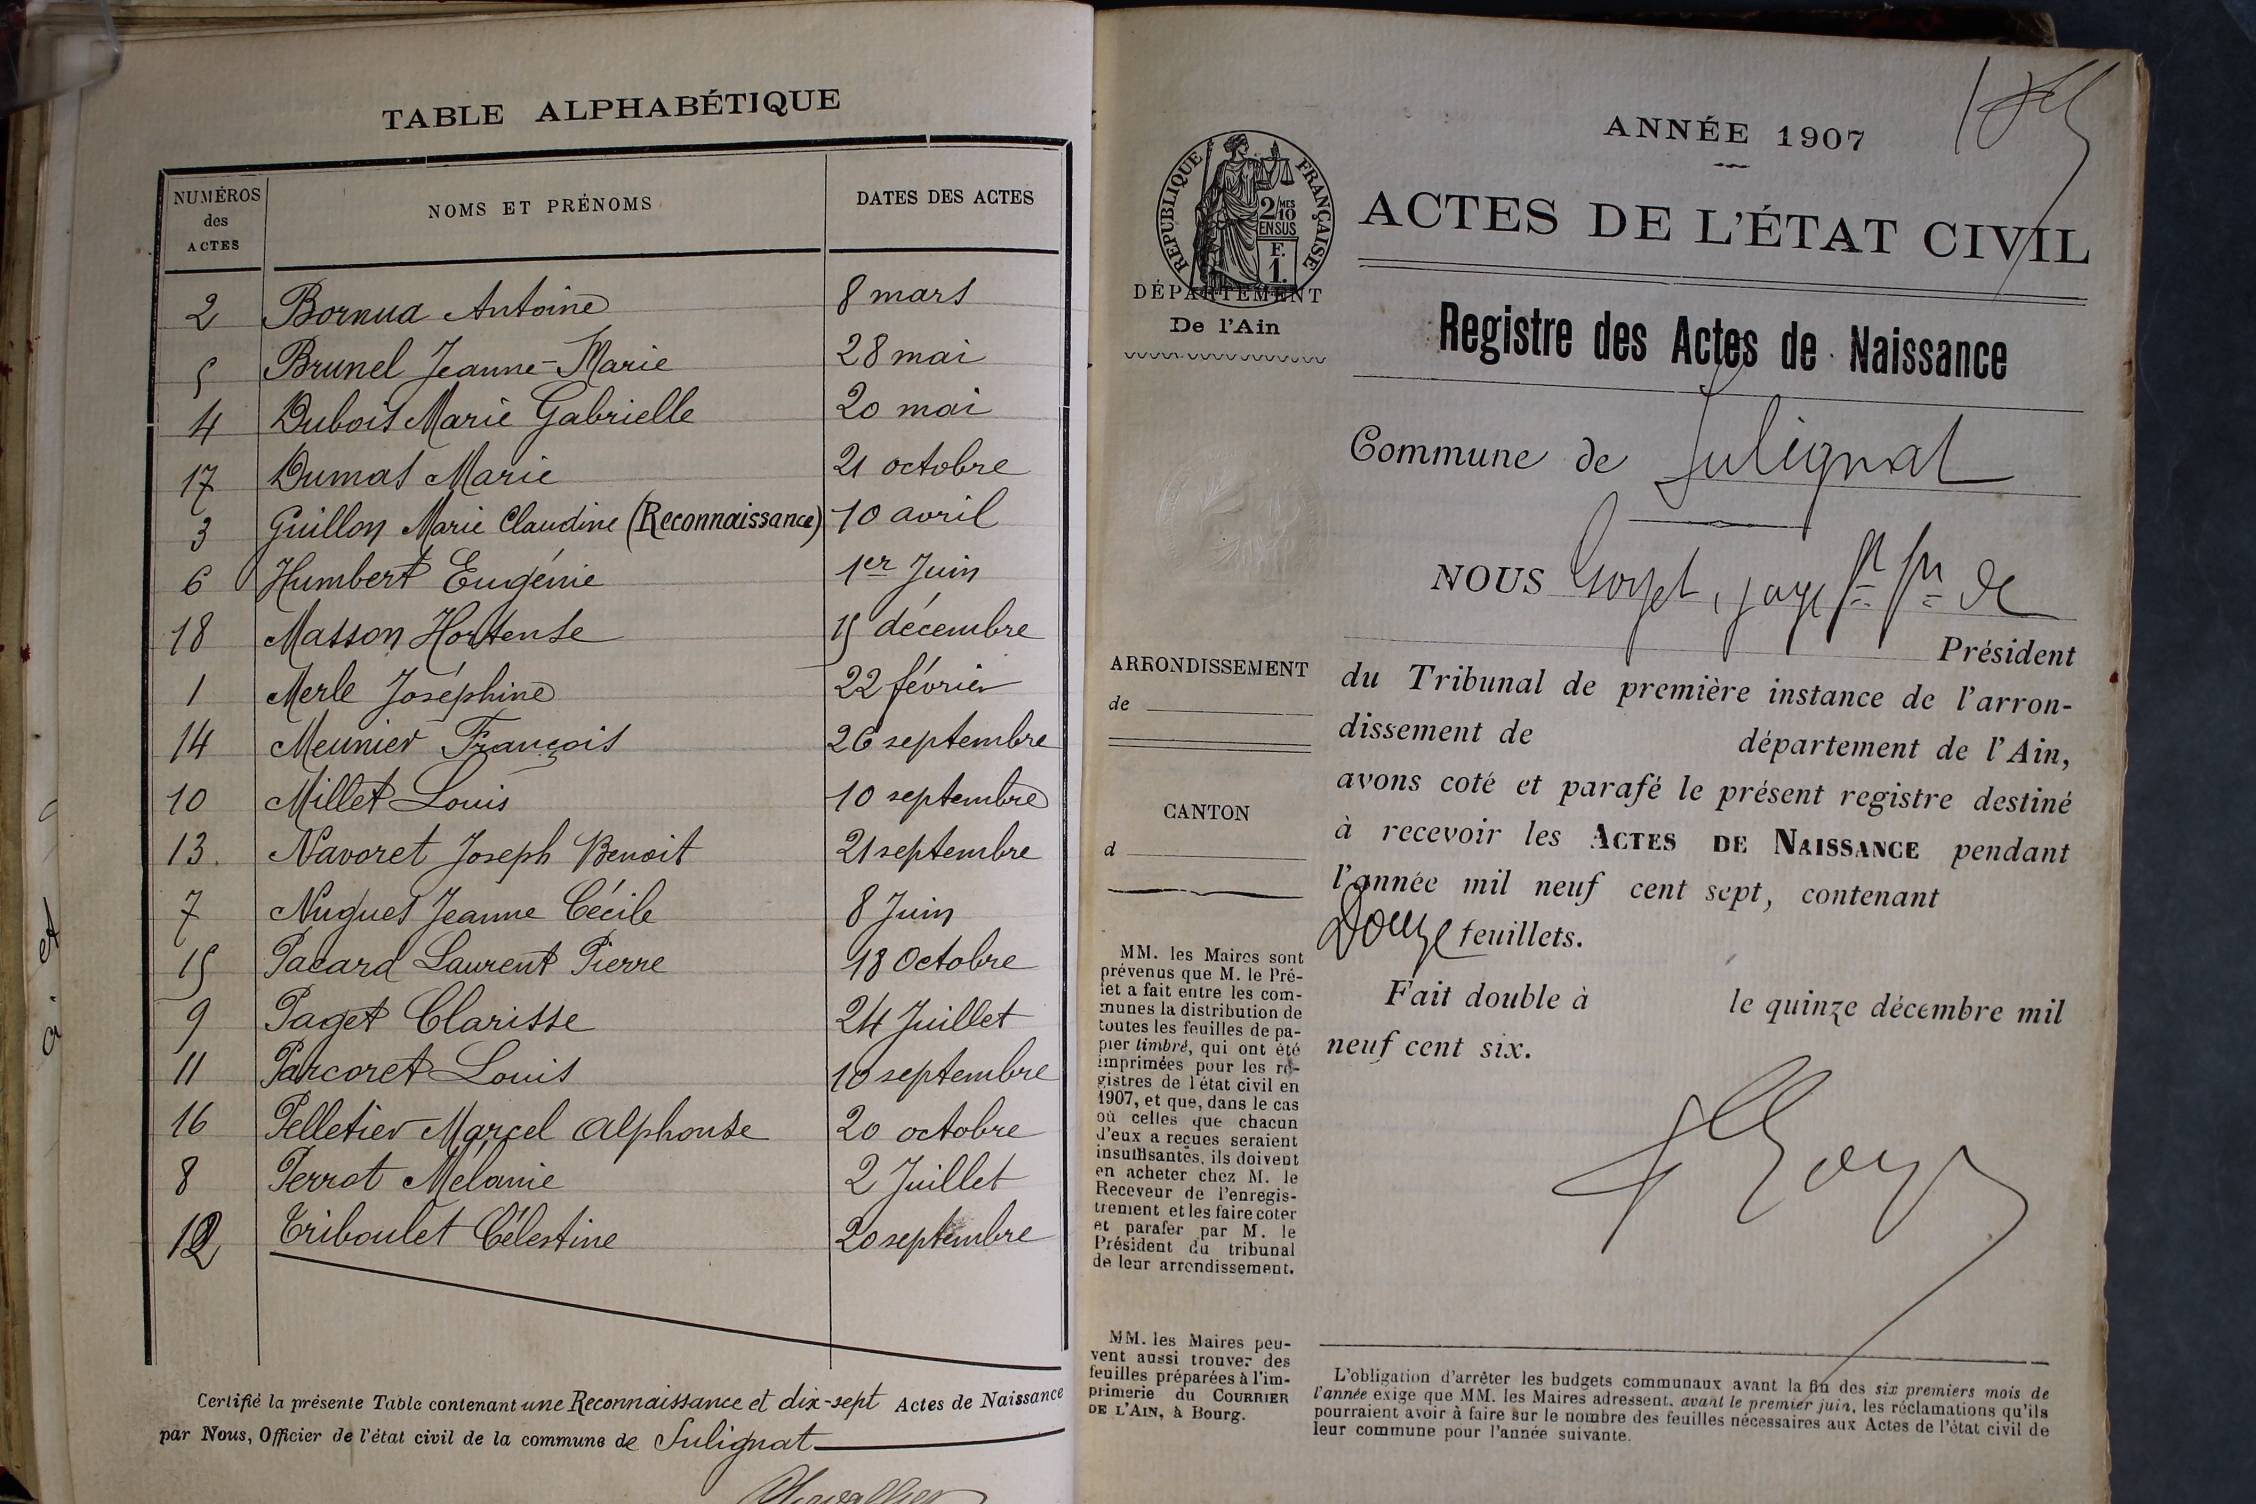 TABLE ALPHABÉTIQUE
NUMÉROS des ACTES NOMS ET PRÉNOMS DATES DES ACTES
2 Bornua Antoine 8 mars
5 Brunel Jeanne-Marie 28 mai
4 Dubois Marie Gabrielle 20 mai
17 Dumas Marie 21 octobre
3 Guillon Marie Claudine (Reconnaissance) 10 avril
6 Humbert Eugénie 1er Juin
18 Masson Hortense 15 décembre
1 Merle Joséphine 22 février
14 Meunier François 26 septembre
10 Millet Louis 10 septembre
13. Navoret Joseph Benoit 21 septembre
7 Nugues Jeanne Cécile 8 Juin
15 Pacard Laurent Pierre 18 Octobre
9 Paget Clarisse 24 Juillet
11 Parcoret Louis 10 septembre
16 Pelletier Marcel Alphonse 20 octobre
8 Perrat Mélanie 2 Juillet
12 Triboulet Célestine 20 septembre
Certifié la présente Table contenant une Reconnaissance et dix-sept Actes de Naissance
par Nous, Officier de l'état civil de la commune de Sulignat
ANNÉE 1907
ACTES DE L'ÉTAT CIVIL
RÉPUBLIQUE FRANÇAISE
2/10 MES
EN SUS
F.
1.
DÉPARTEMENT
De l'Ain
Registre des Actes de Naissance
Commune de Sulignat
NOUS
Président
du Tribunal de première instance de l'arron-
dissement de département de l'Ain,
avons coté et parafé le présent registre destiné
à recevoir les ACTES DE NAISSANCE pendant
l'année mil neuf cent sept, contenant
Douze feuillets.
Fait double à le quinze décembre mil
neuf cent six.
ARRONDISSEMENT
de
CANTON
d
MM. les Maires sont
prévenus que M. le Pré-
fet a fait entre les com-
munes la distribution de
toutes les feuilles de pa-
pier timbré, qui ont été
imprimées pour les re-
gistres de l'état civil en
1907, et que, dans le cas
où celles que chacun
d'eux a reçues seraient
insuffisantes, ils doivent
en acheter chez M. le
Receveur de l'enregis-
trement et les faire coter
et parafer par M. le
Président du tribunal
de leur arrondissement.
MM. les Maires peu-
vent aussi trouver des
feuilles préparées à l'im-
primerie du COURRIER
DE L'AIN, à Bourg.
L'obligation d'arrêter les budgets communaux avant la fin des six premiers mois de
l'année exige que MM. les Maires adressent, avant le premier juin, les réclamations qu'ils
pourraient avoir à faire sur le nombre des feuilles nécessaires aux Actes de l'état civil de
leur commune pour l'année suivante.